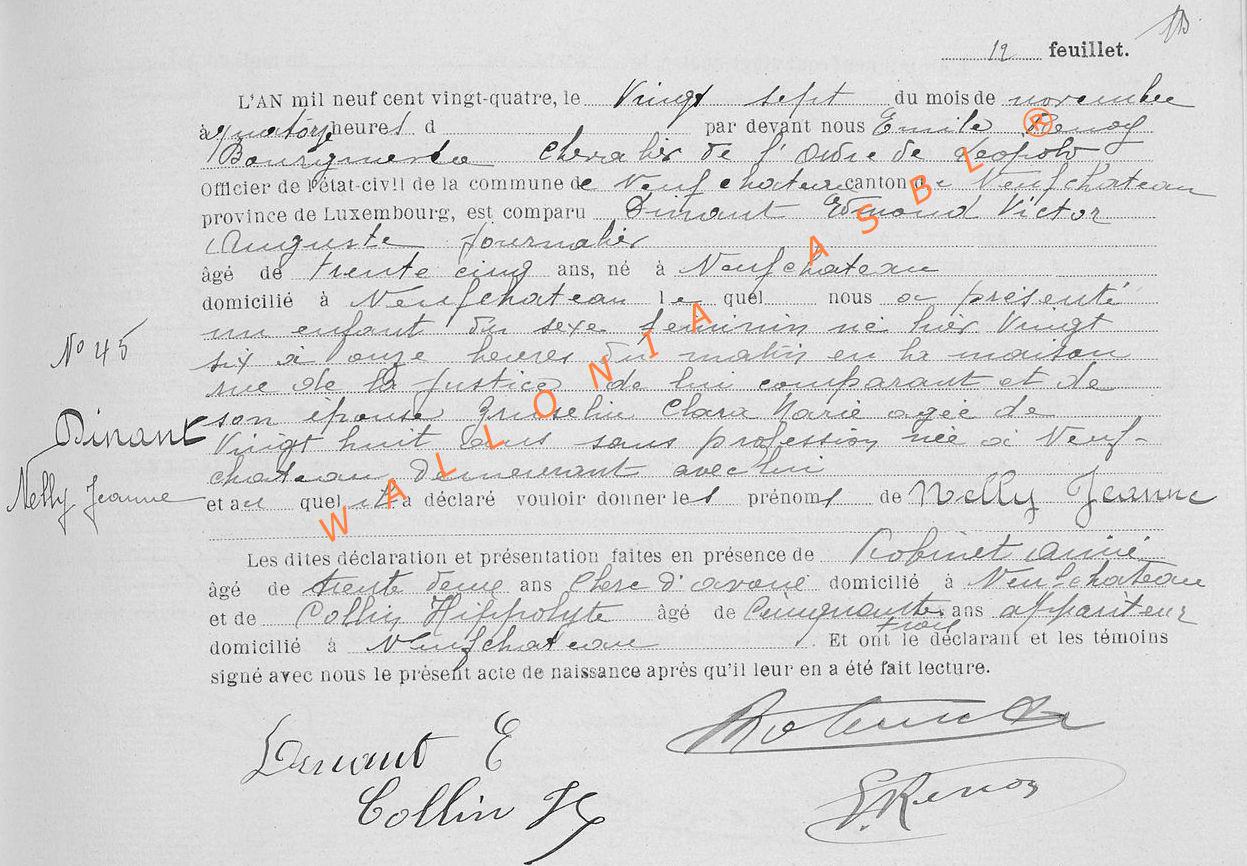 12 feuillet.
L'AN mil neuf cent vingt-quatre, le Vingt sept du mois de novembre
à quatorze heures d par devant nous Emile Renoz
Bourgmestre Chevalier de l'Ordre de Léopold
Officier de l'état-civil de la commune de Neufchateau canton de Neufchâteau
province de Luxembourg, est comparu Dinant Edmond Victor
Auguste journalier
âgé de trente cinq ans, né à Neufchateau
domicilié à Neufchateau le quel nous a présenté
un enfant du sexe féminin né hier Vingt
six à onze heures du matin en la maison
rue de la justice de lui comparant et de
son épouse Clara Marie agée de
Vingt huit ans sans profession née à Neuf-
chateau demeurant avec lui
et au quel il a déclaré vouloir donner les prénoms de Nelly Jeanne
N° 45
Dinant
Nelly Jeanne
Les dites déclaration et présentation faites en présence de Robinet Aimé
âgé de trente deux ans Clerc d'avoué domicilié à Neufchateau
et de Collin Hippolyte âgé de Cinquante trois ans appariteur
domicilié à Neufchateau. Et ont le déclarant et les témoins
signé avec nous le présent acte de naissance après qu'il leur en a été fait lecture.
Dinant E
Collin H
E. Renoz
WALLONIA ASBL ®